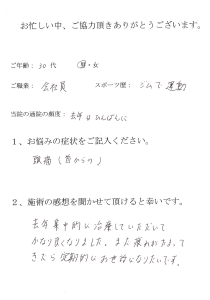 お忙しい中、ご協力頂きありがとうございます。
ご年齢：30代　男・女
ご職業：会社員　スポーツ歴：ジムで運動
当院の通院の頻度：去年はひんぱんに
1、お悩みの症状をご記入ください。
頭痛(昔からの)
2、施術の感想を聞かせて頂けると幸いです。
去年集中的に治療していただいて
かなり良くなりました。また疲れがたまって
きたら定期的にお世話になりたいです。